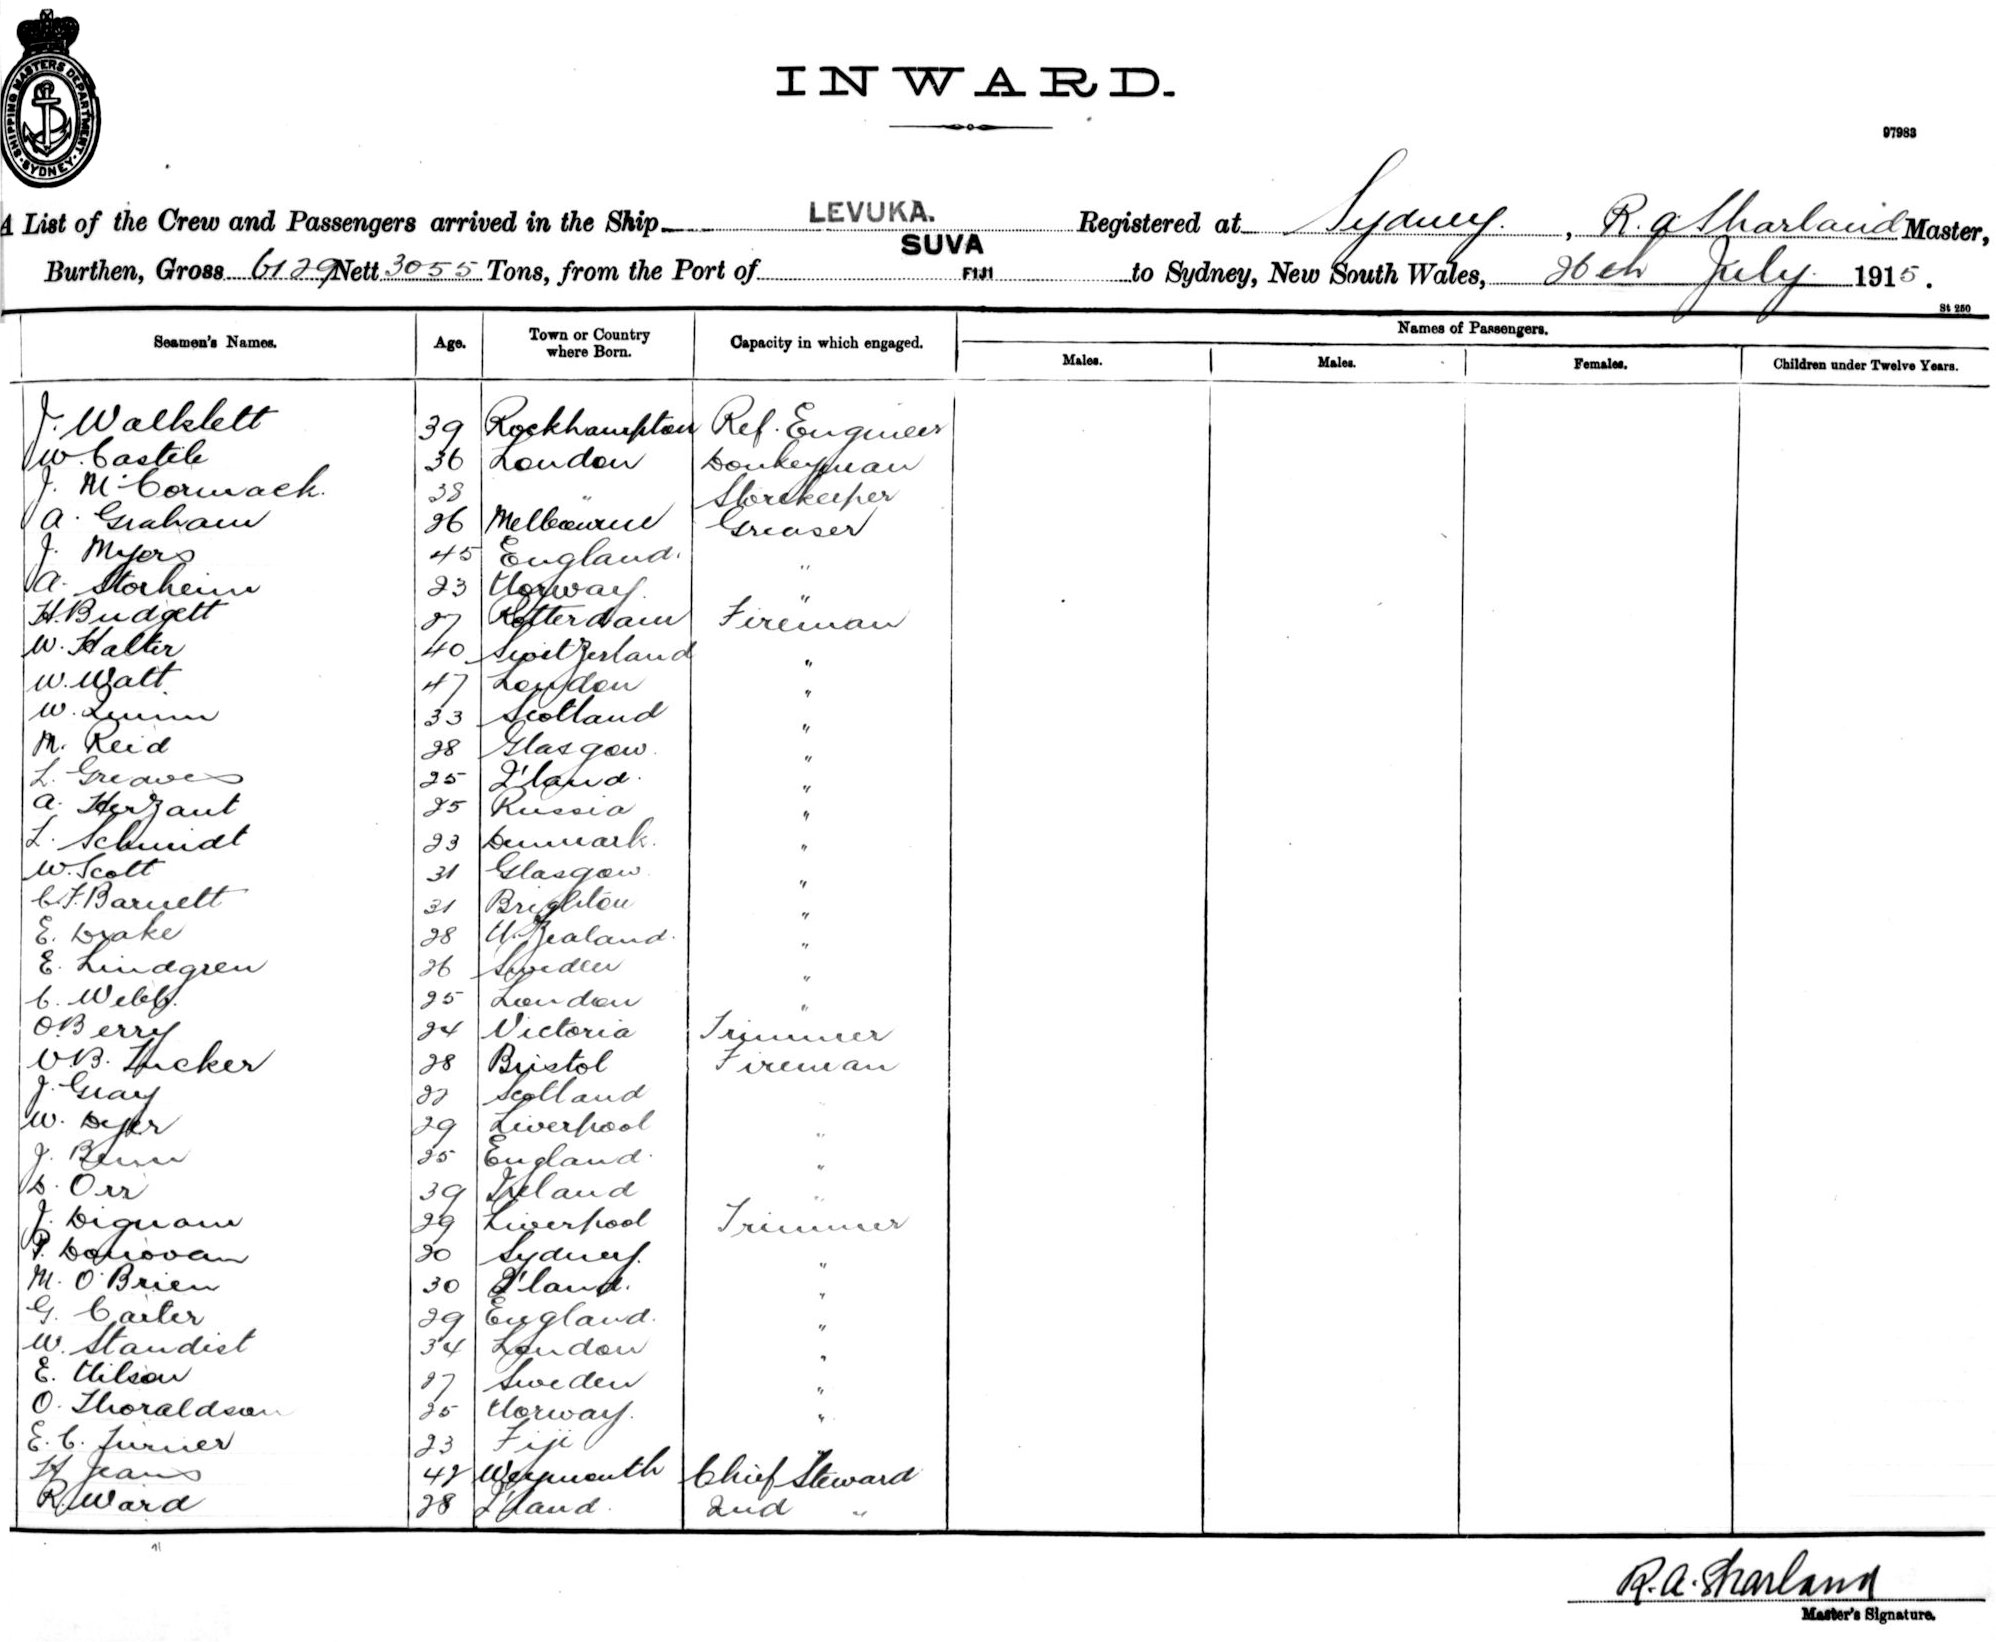 SHIPPING MASTERS DEPARTMENT · SYDNEY ·
INWARD.
97983
A List of the Crew and Passengers arrived in the Ship LEVUKA. Registered at Sydney. , R. A Sharland Master,
Burthen, Gross 6129 Nett 3055 Tons, from the Port of SUVA FIJI to Sydney, New South Wales, 26th July 1915.
St 250
Seamen's Names. Age. Town or Country where Born. Capacity in which engaged. Names of Passengers.
Males. Males. Females. Children under Twelve Years.
J. Walklett 39 Rockhampton Ref. Engineer
W. Castile 36 London Donkeyman
J. McCormack. 38 " Storekeeper
A. Graham 26 Melbourne Greaser
J. Myers 45 England. "
A. Storheim 23 Norway. "
H. Budgett 27 Rotterdam Fireman
W. Halter 40 Switzerland "
W. Watt 47 London "
W. Quinn 33 Scotland "
M. Reid 28 Glasgow. "
L. Greaves 25 I'land. "
A. Herzant 25 Russia "
L. Schmidt 23 Denmark. "
W. Scott 31 Glasgow "
C. F. Barnett 31 Brighton "
E. Drake 28 N. Zealand. "
E. Lindgren 26 Sweden "
C. Webb. 25 London "
O Berry 24 Victoria Trimmer
V. B. Tucker 28 Bristol Fireman
J. Gray 27 Scotland "
W. Dyer 29 Liverpool "
J. Benn 25 England. "
D. Orr 39 Ireland "
J. Dignam 29 Liverpool Trimmer
P. Donovan 20 Sydney. "
M. O'Brien 30 I'land. "
G. Carter 29 England. "
W. Standist 34 London "
E. Nilson 27 Sweden "
O. Thoraldson 25 Norway. "
E. C. Turner 23 Fiji "
H Jeans 42 Weymouth Chief Steward
R. Ward 28 I'land. 2nd "
R. A. Sharland
Master's Signature.